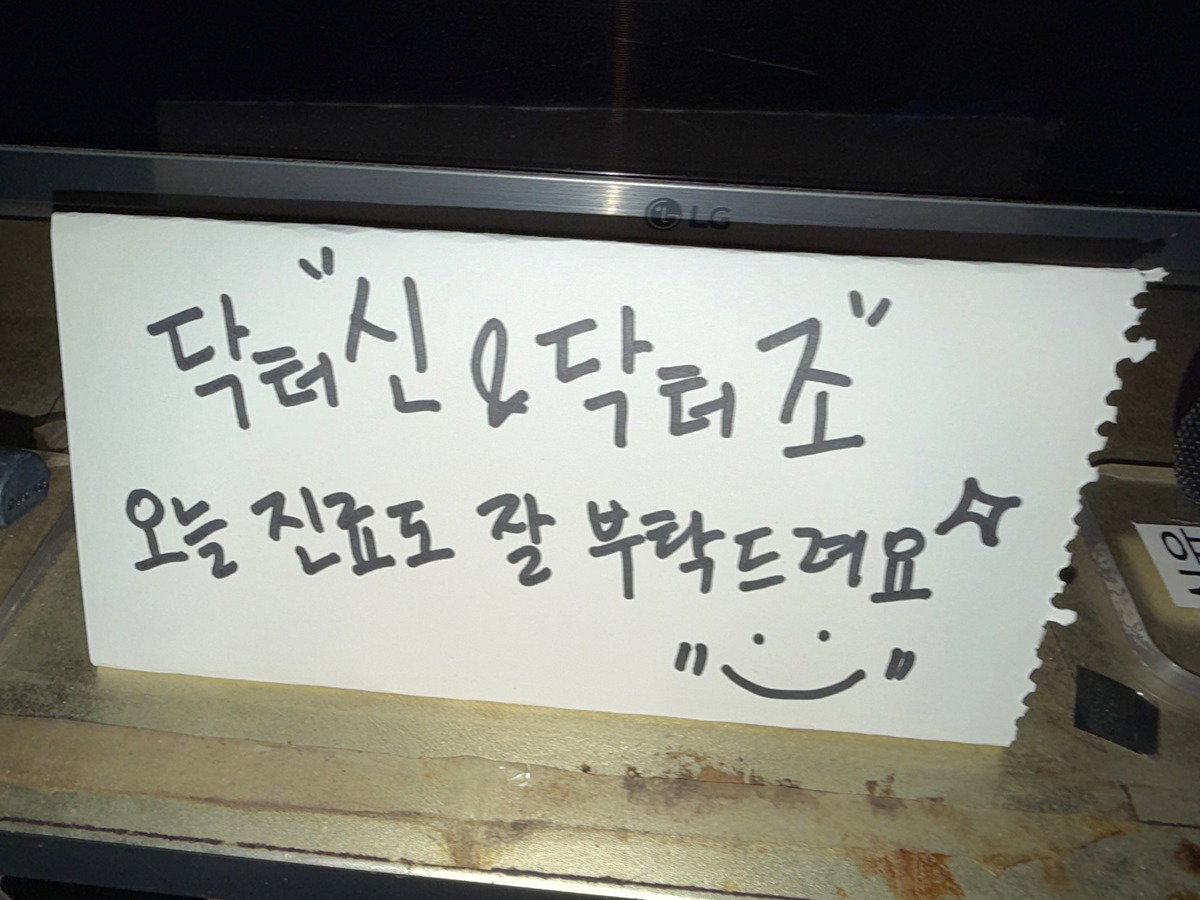 LG
닥터"신 & 닥터 조"
오늘 진료도 잘 부탁드려요